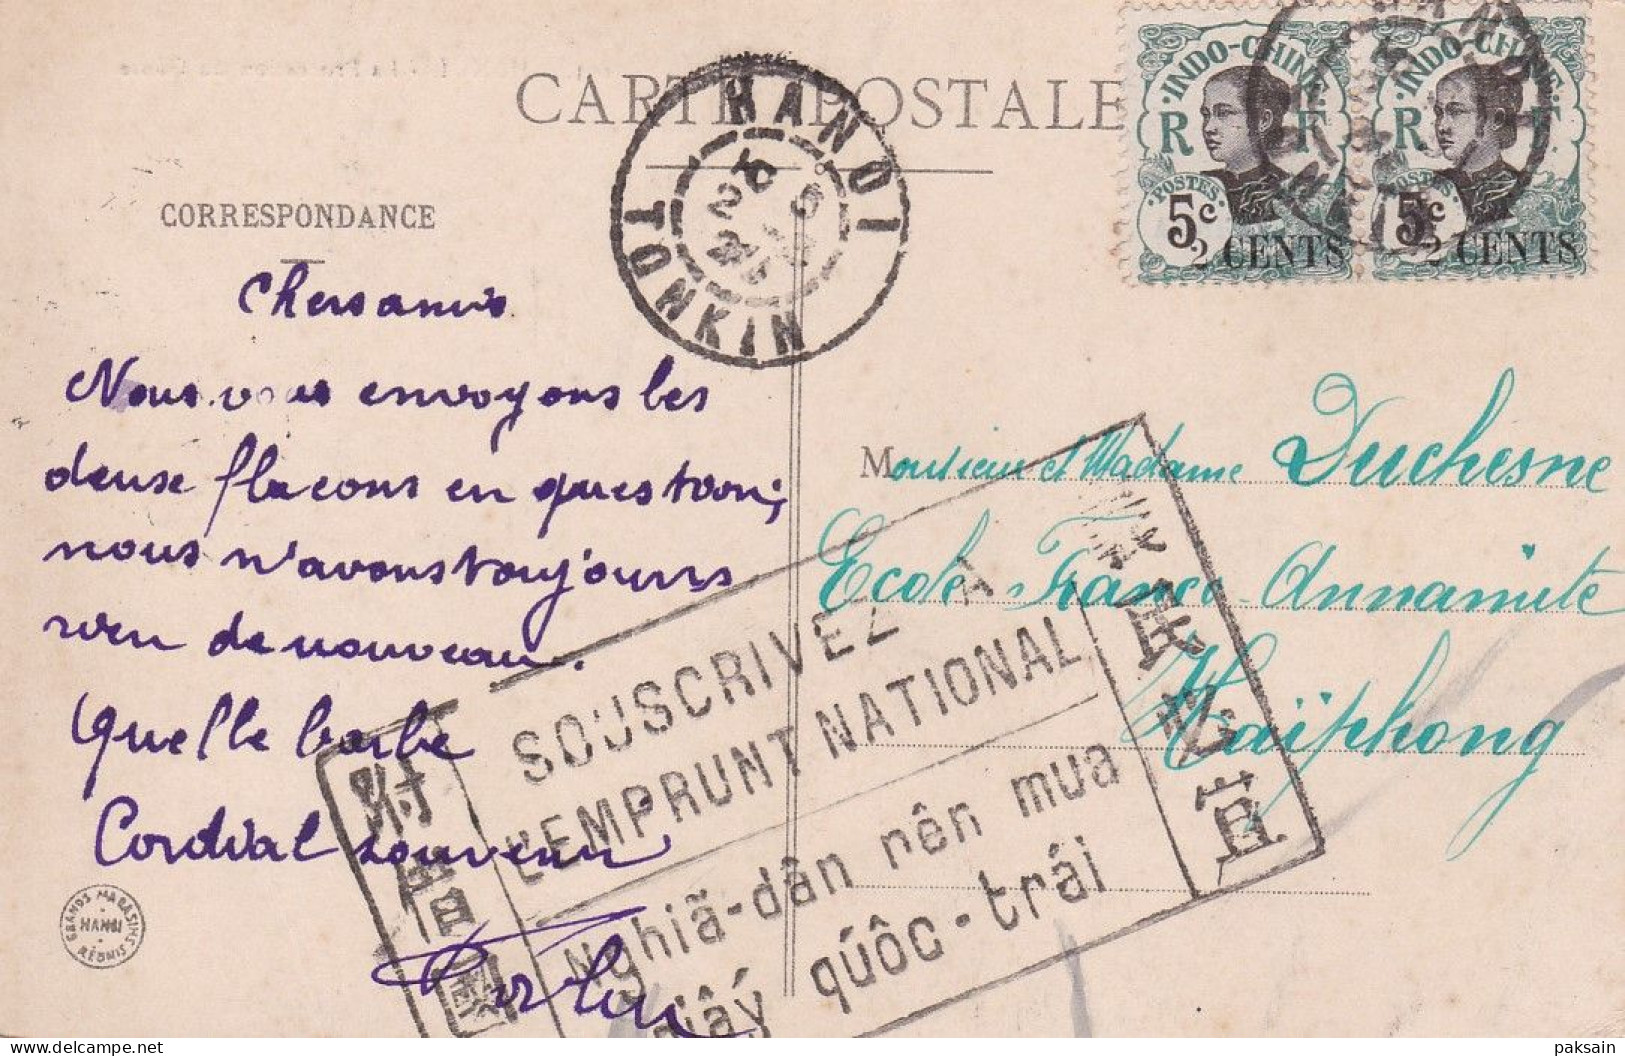 CARTE POSTALE
CORRESPONDANCE
INDO-CHINE
R F
POSTES
5c
2 CENTS
INDO-CHINE
R F
POSTES
5c
2 CENTS
HANOI
TONKIN
Chers amis
Nous vous envoyons les
deux flacons en question;
nous n'avons toujours
rien de nouveau.
Quelle barbe
Cordial souvenir
Monsieur et Madame Duchesne
Ecole Franco-Annamite
Haïphong
SOUSCRIVEZ A
L'EMPRUNT NATIONAL
Nghiã-dân nên mua
giâý qúôc-trái
民 之 宜
買 國
GRANDS MAGASINS
HANOI
RÉUNIS
paksain